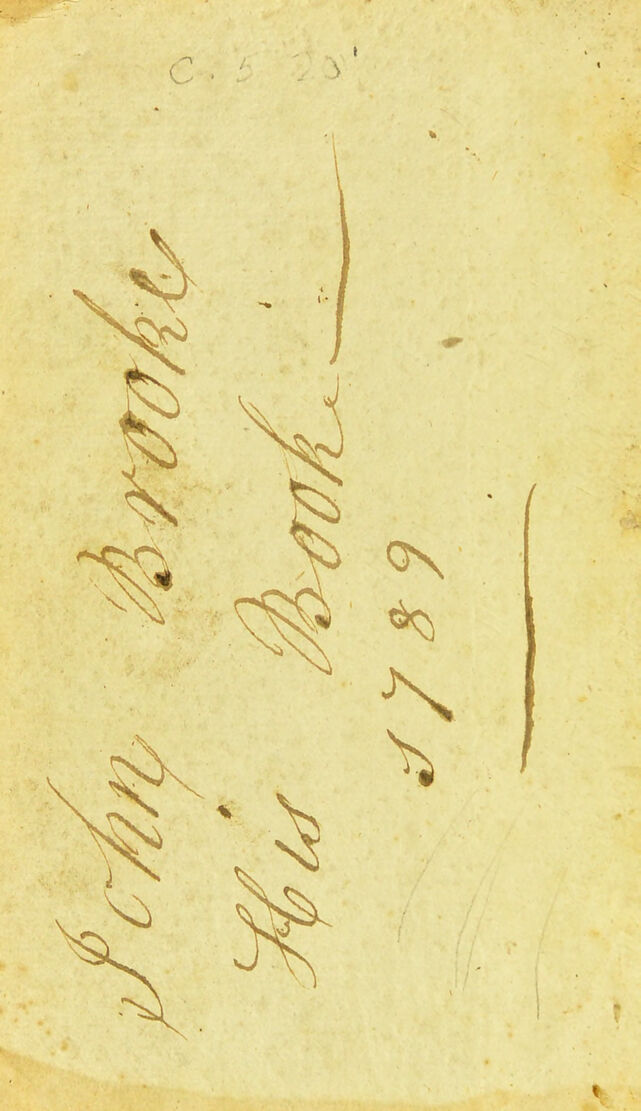 C. 5 20
John Brooke
His Booke
1789